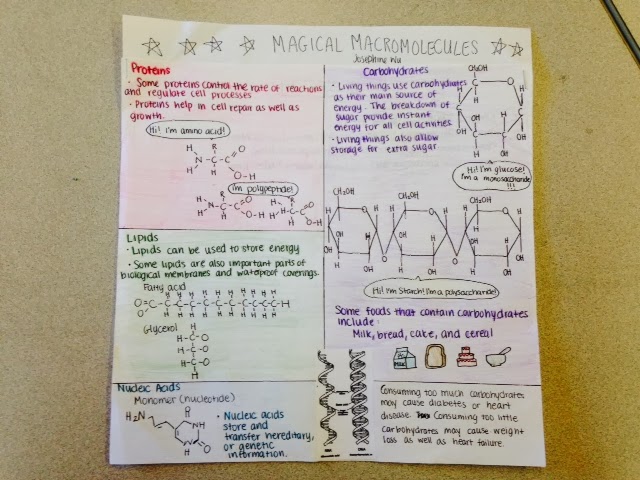 MAGICAL MACROMOLECULES
Proteins
· Some proteins control the rate of reactions
and regulate cell processes
· Proteins help in cell repair as well as
growth.
Hi! I'm amino acid!
H
R
H
N-C-C
O
H
O-H
I'm polypeptide!
Lipids
· Lipids can be used to store energy
· Some lipids are also important parts of
biological membranes and waterproof coverings.
Fatty acid
Glycerol
Nucleic Acids
Monomer (nucleotide)
H₂N
NH
O
· Nucleic acids
store and
transfer hereditary,
or genetic
information.
Carbohydrates
· Living things use carbohydrates
as their main source of
energy. The breakdown of
sugar provide instant
energy for all cell activities.
· Living things also allow
storage for extra sugar
CH₂OH
O
H
OH
Hi! I'm glucose!
I'm a monosaccharide
!!!
CH₂OH
CH₂OH
CH₂OH
Hi! I'm Starch! I'm a polysaccharide!
Some foods that contain carbohydrates
include:
Milk, bread, cake, and cereal
Consuming too much carbohydrates
may cause diabetes or heart
disease. Consuming too little
carbohydrates may cause weight
loss as well as heart failure.